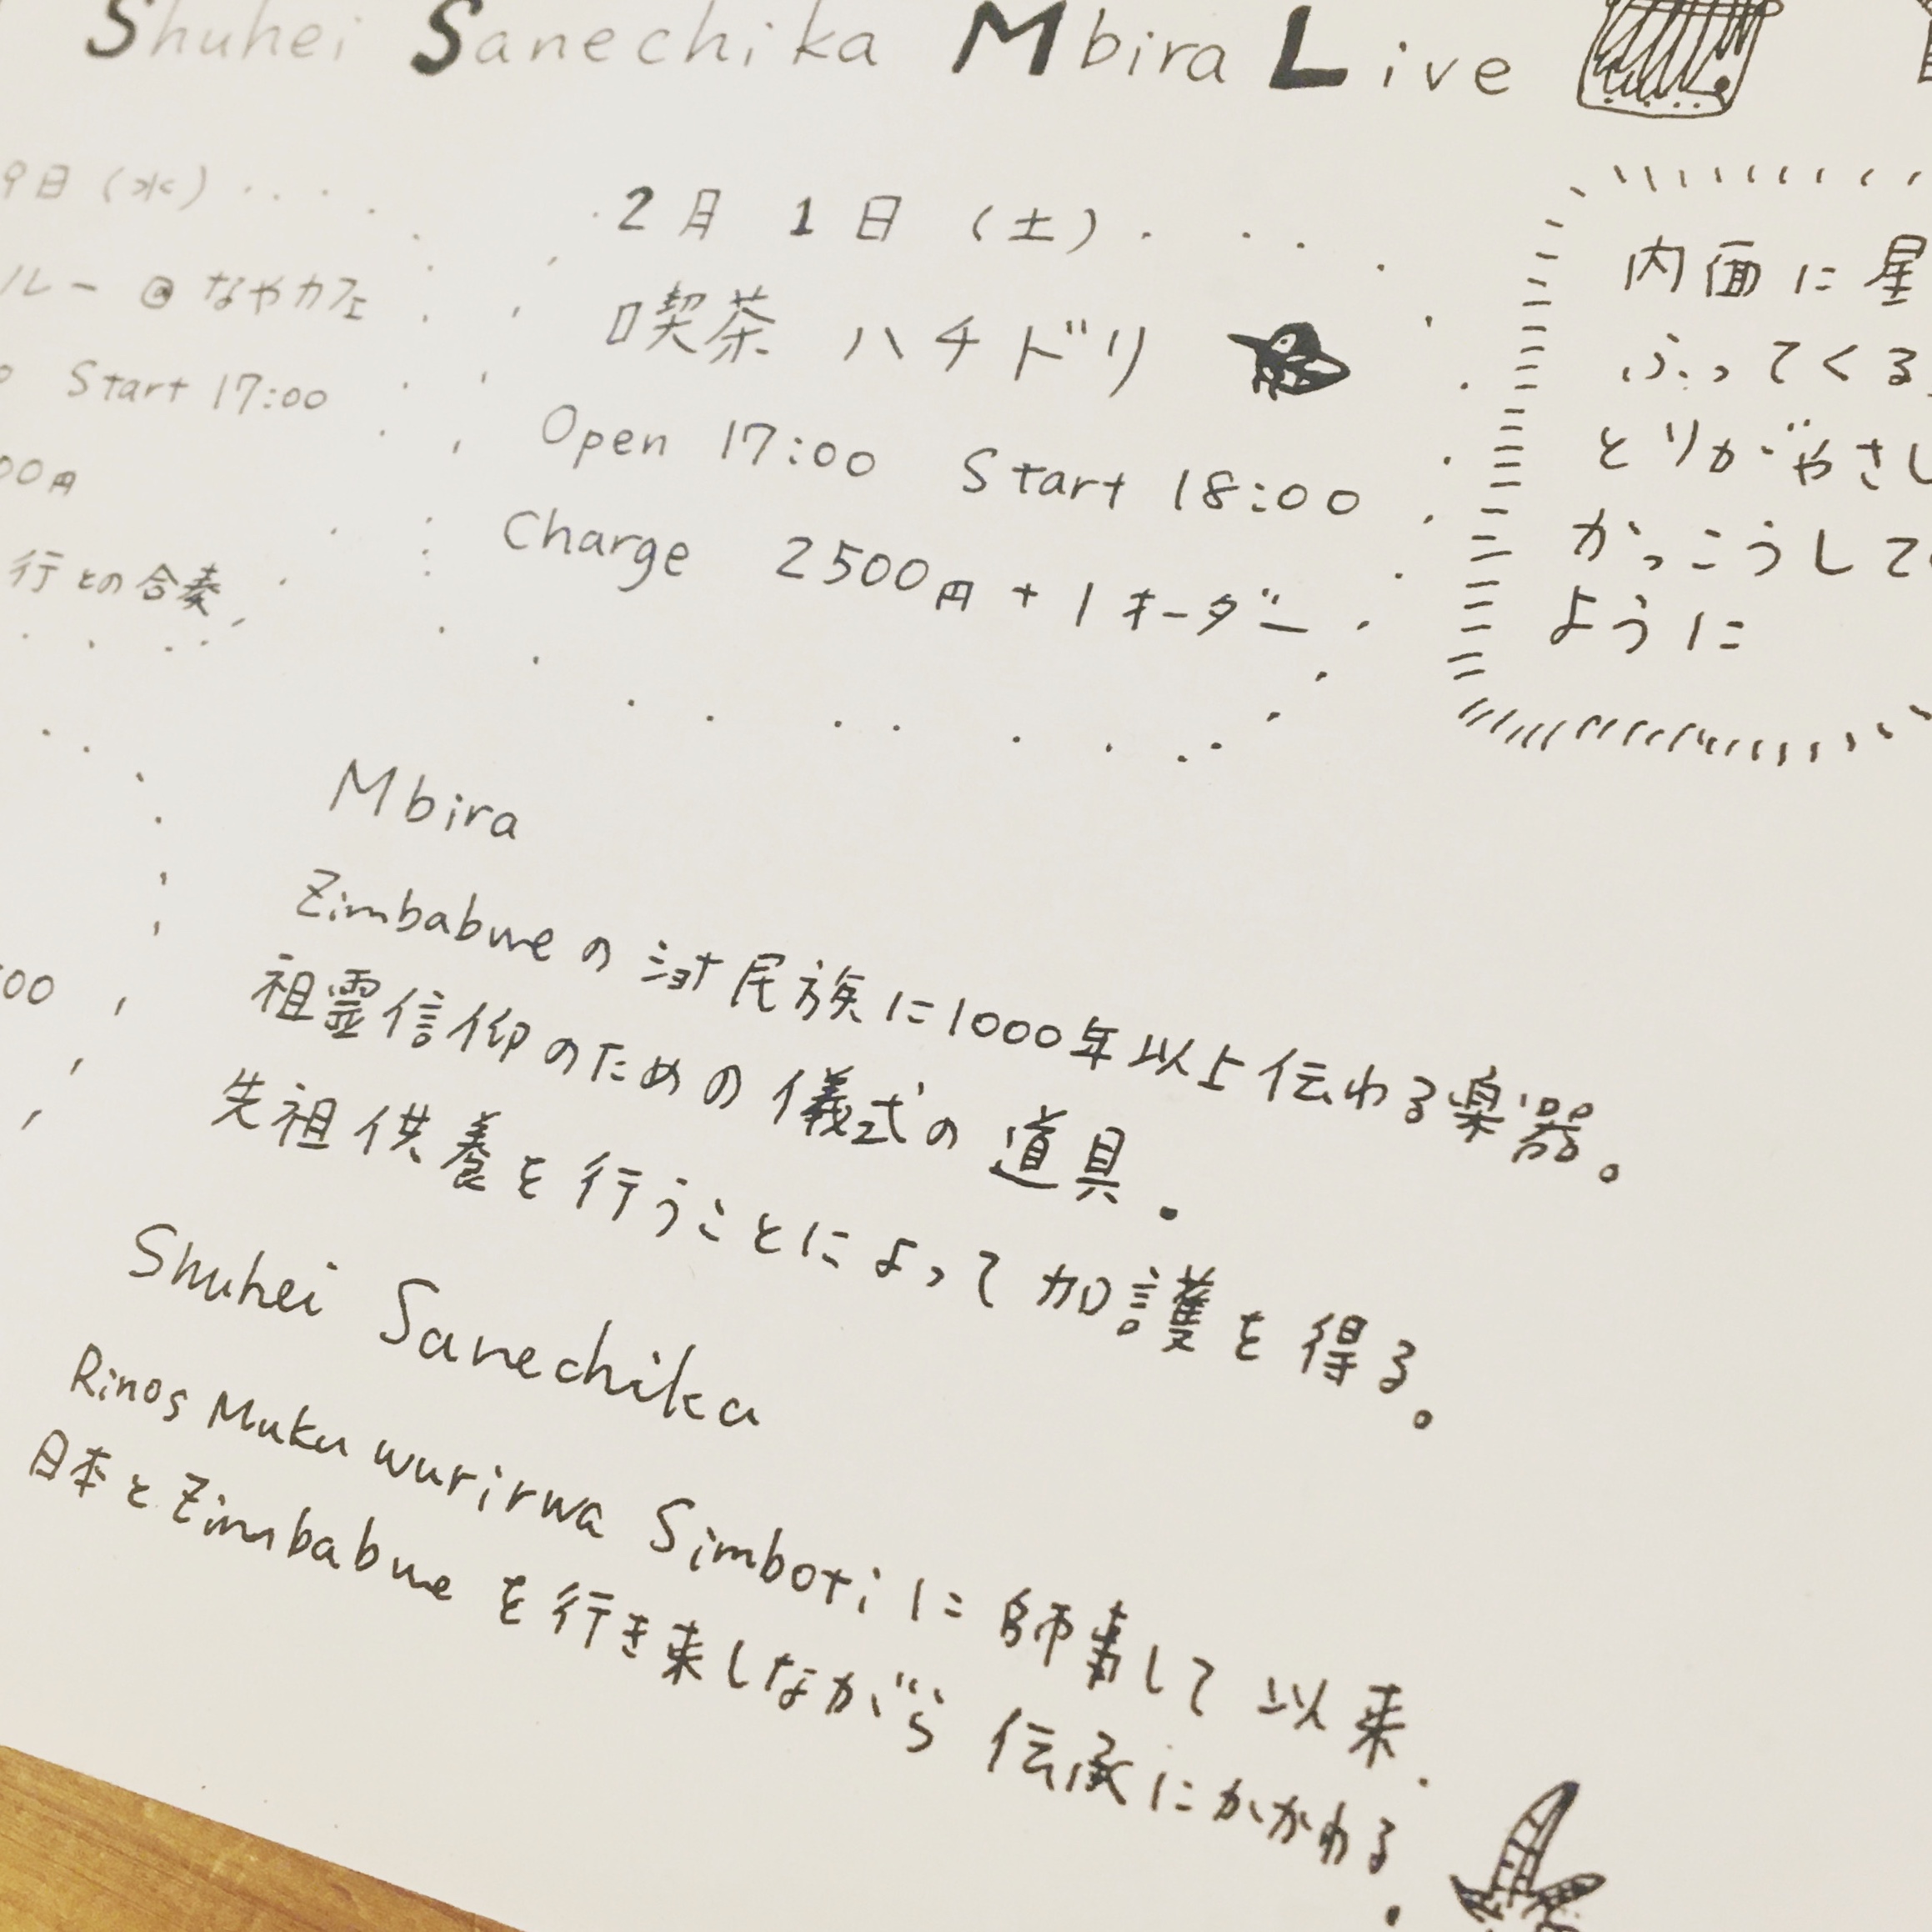 Shuhei Sanechika Mbira Live
9日(水)
ルー@なやカフェ
Start 17:00
00円
行との合奏
2月1日(土)
喫茶ハチドリ
Open 17:00 Start 18:00
Charge 2500円+1オーダー
内面に星
ふってくる
とりがやさし
かっこうして
ように
00
Mbira
Zimbabweのショナ民族に1000年以上伝わる楽器。
祖霊信仰のための儀式の道具.
先祖供養を行うことによって加護を得る。
Shuhei Sanechika
Rinos Mukuwurirwa Simbotiに師事して以来.
日本とZimbabweを行き来しながら伝承にかかわる.